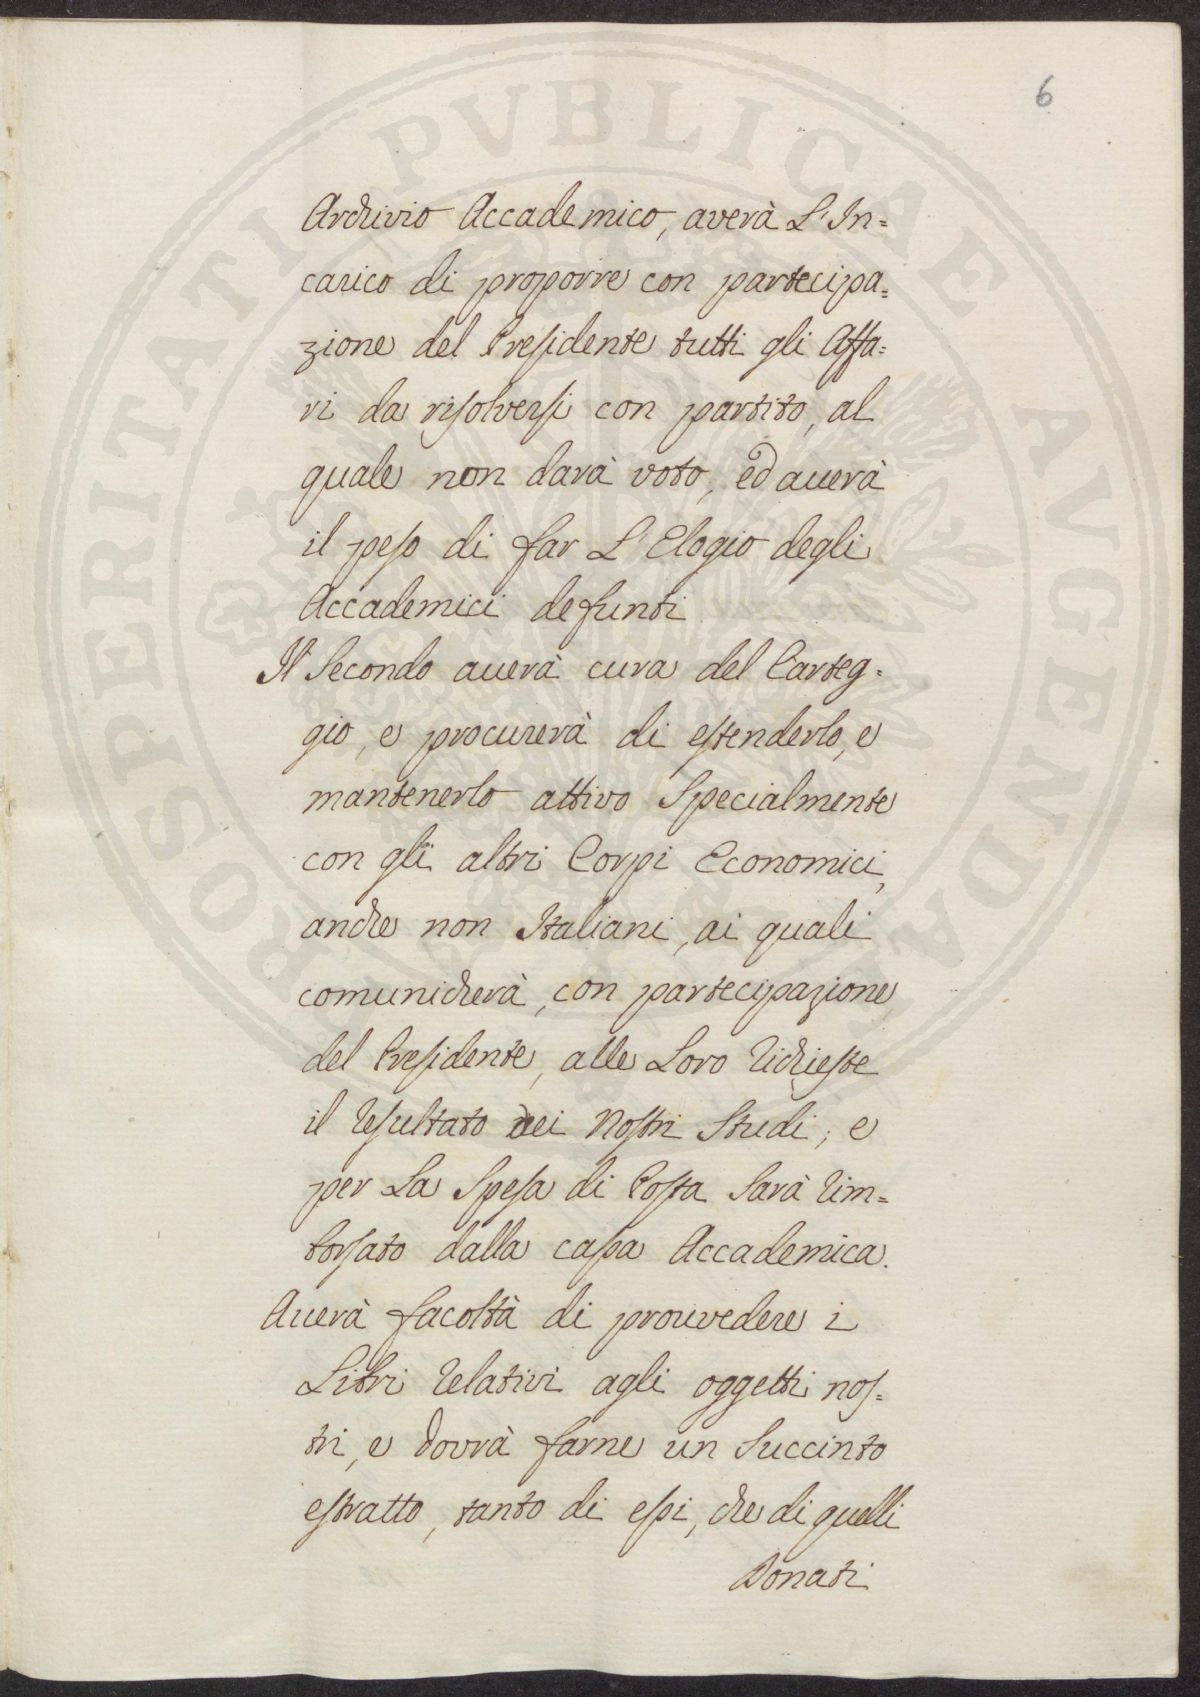 6
Archivio Accademico, averà L'In=
carico di proporre con partecipa=
zione del Presidente tutti gli Affa=
ri da risolversi con partito, al
quale non darà voto, ed auerà
il peso di far L'Elogio degli
Accademici defunti
Il Secondo auerà cura del Carteg=
gio, e procurerà di estenderlo, e
mantenerlo attivo Specialmente
con gli altri Corpi Economici,
anche non Italiani, ai quali
comunicherà, con partecipazione
del Presidente, alle Loro Richieste
il Resultato dei Nostri Studi; e
per La Spesa di Posta Sarà Rim=
borsato dalla cassa Accademica.
Auerà facoltà di prouvedere i
Libri Relativi agli oggetti nos=
tri, e dovrà farne un Succinto
estratto, tanto di essi, che di quelli
Donati
PROSPERITATI PVBLICAE AVGENDAE